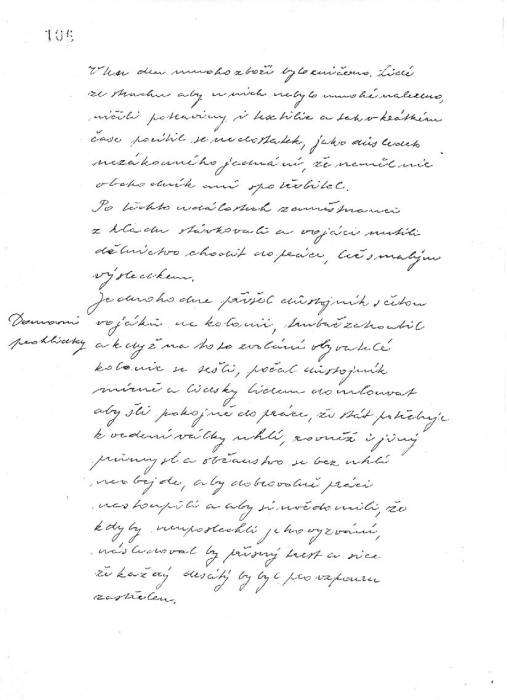 106
V ten den mnoho zboží bylo zničeno. Lidé
ze strachu aby u nich nebylo mnohé nalezeno,
ničili potraviny i textilie a tak v krátkém
čase pocítil se nedostatek, jako důsledek
nezákonného jednání, že neměl nic
obchodník ani spotřebitel.
Po těchto událostech zaměstnanci
z hladu stávkovali a vojáci nutili
dělnictvo chodit do práce, leč s malým
výsledkem.
Jednoho dne přišel důstojník s četou
Domovní
prohlídky
vojáků na kolonii, trubač zatroubil
a když na toto svolání obyvatelé
kolonie se sešli, počal důstojník
mírně a lidsky lidem domlouvat
aby šli pokojně do práce, že stát potřebuje
k vedení války uhlí, rovněž i jiný
průmysl a občanstvo se bez uhlí
neobejde, aby dobrovolně práci
nastoupili a aby si uvědomili, že
kdyby neuposlechli jeho vyzvání,
následoval by přísný trest a sice
že každý desátý by byl pro vzpouru
zastřelen.